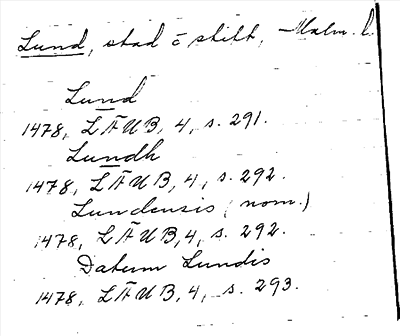 Lund, stad o stift, Malm. l.
Lund
1478, LÄUB, 4, s. 291.
Lundh
1478, LÄUB, 4, s. 292.
Lundensis (nom.)
1478, LÄUB, 4, s. 292.
Datum Lundis
1478, LÄUB, 4, s. 293.